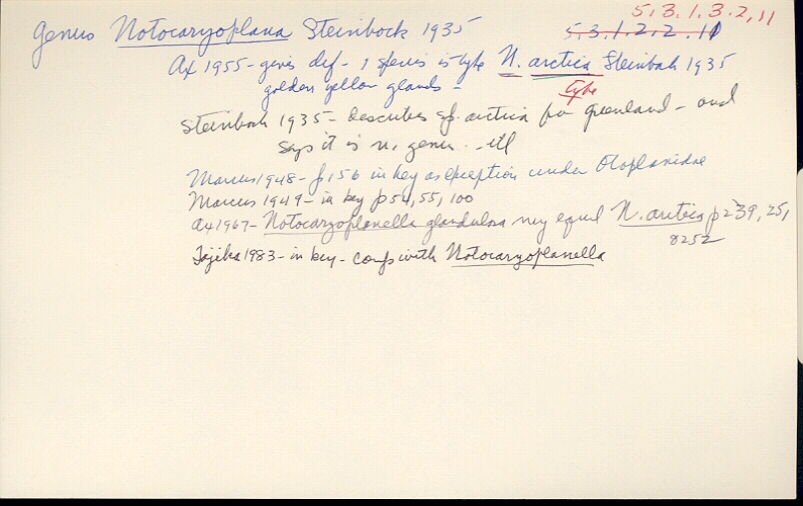 5.3.1.3.2,11
Genus Notocaryoplana Steinbock 1935 5.3.1.2.2.11
Ax 1955 - gives def - 1 species is type N. arctica Steinbock 1935
golden yellow glands - type
Steinbock 1935 - describes sp. arctica for Greenland - and
says it is n. genus - ill
Marcus 1948 - p156 in key as exception under Otoplanidae
Marcus 1949 - in key p54, 55, 100
Ax 1967 - Notocaryoplanella glandulosa may equal N. arctica p239, 251,
8252
Tajika 1983 - in key - comp with Notocaryoplanella